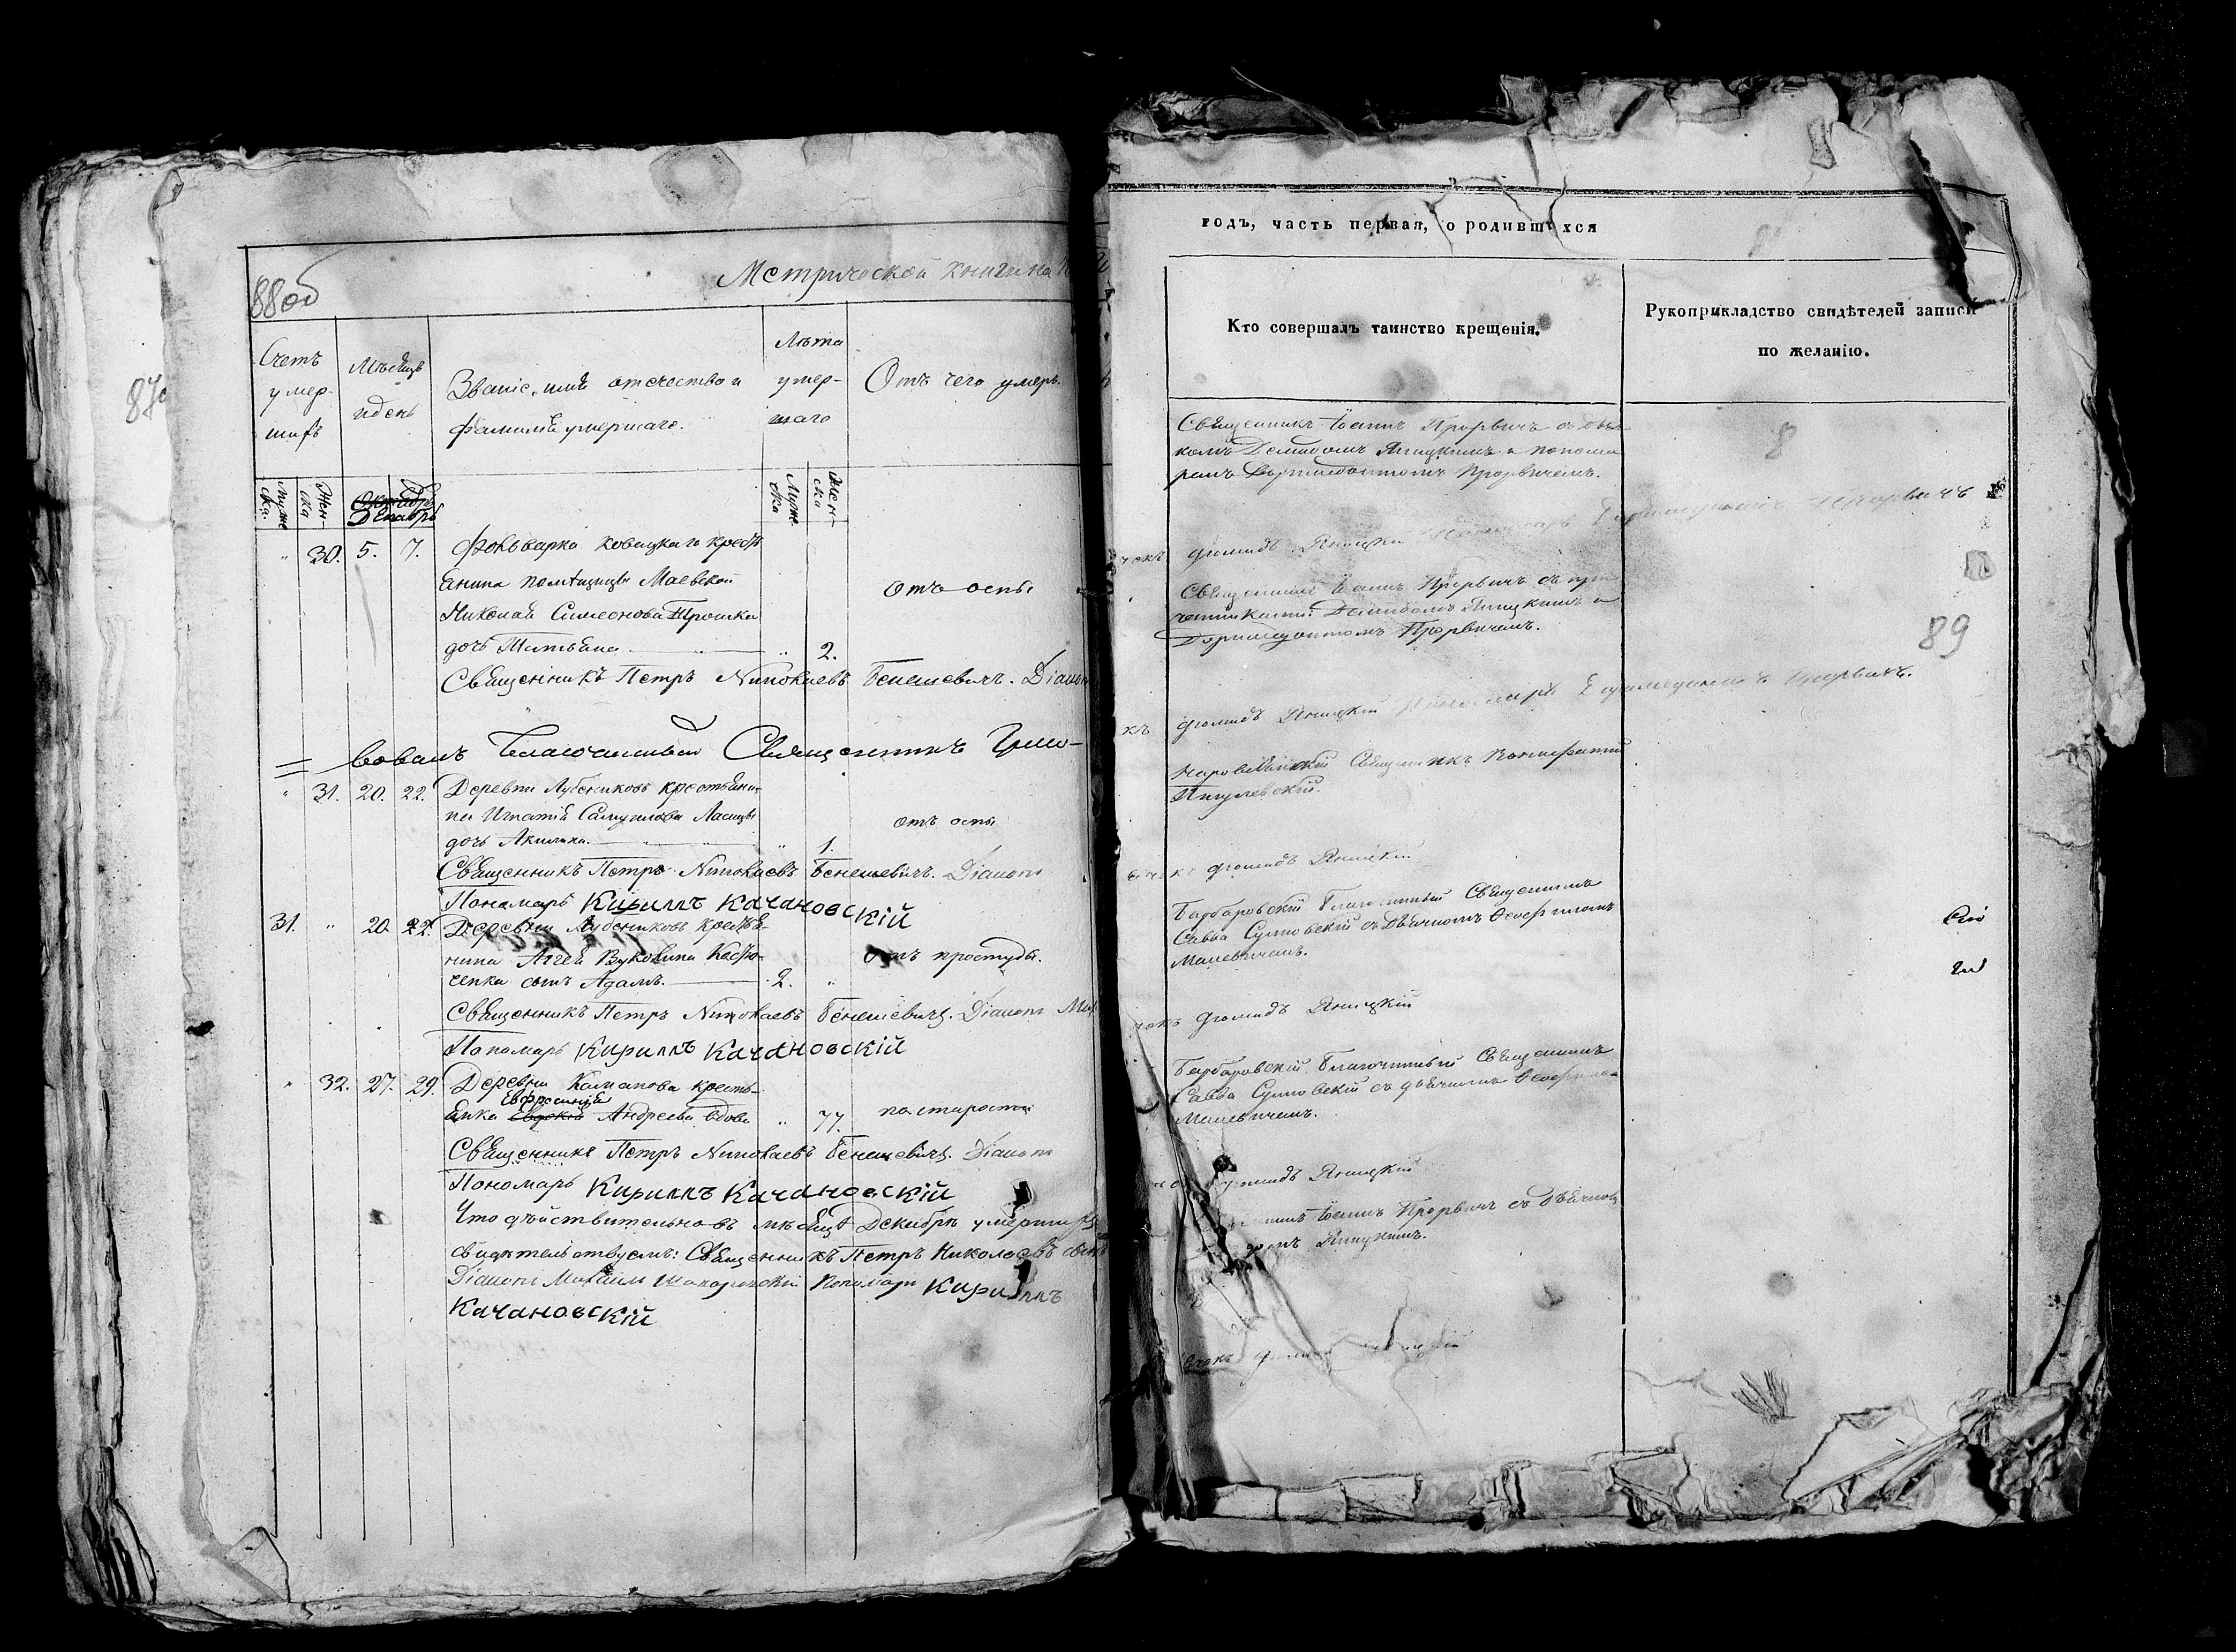 88об
Метрической книги на
Счетъ умер-шихъ
Мѣсяцъ и день
Званіе, имя отчество и фамилія умершаго.
Лѣта умер-шаго
Отъ чего умеръ.
Муже ска.
Жен-ска
Октябрь
Декабрь
Муже ска
Жен-ска
" 30. 5. 7. Фольварка Ковацкаго крестъ
янина помѣщицы Маевской
Николая Симеонова Трошка
дочь Татьяна " 2.
отъ оспы
Священникъ Петръ Николаевъ Бенешевичъ. Діаконъ
вовалъ Благочинный Священникъ Григо-
" 31. 20. 22. Деревни Лубениковъ крестьяни-
на Игнатія Самуилова Ласицы
дочь Акилина. " 1.
отъ оспы
Священникъ Петръ Николаевъ Бенешевичъ. Діаконъ
Пономарь Кириллъ Качановскій
31. " 20. 22. Деревни Лубениковъ крестья-
нина Аггея Вуковина Костю-
ченка сынъ Адамъ. 2. "
Отъ простуды.
Священникъ Петръ Николаевъ Бенешевичъ. Діаконъ Мих
Пономарь Кириллъ Качановскій
" 32. 27. 29. Деревни Каманова кресть-
Евфросинія
янка Андреева вдова " 77.
по старости
Священникъ Петръ Николаевъ Бенешевичъ. Діаконъ
Пономарь Кириллъ Качановскій
Что дѣйствительно въ мѣсяцѣ Декабрѣ умершихъ
свидѣтельствуемъ: Священникъ Петръ Николаевъ
Діаконъ Михаилъ Пономарь Кириллъ
Качановскій
87
годъ, часть первая, о родившихся
Кто совершалъ таинство крещенія.
Рукоприкладство свидѣтелей записи по желанію.
Священникъ Іоаннъ Прорвичъ съ дья-
комъ Демидомъ Яницкимъ и понома
ремъ Доримедонтомъ Прорвичемъ.
8
Діомидъ Яницкій Пономарь Доримедонтъ Прорвичъ
Священникъ Іоаннъ Прорвичъ съ при
четниками: Демидомъ Яницкимъ и
Доримедонтомъ Прорвичемъ.
89
Діомидъ Яницкій Пономарь Доримедонтъ Прорвичъ.
Наровлянскій Священникъ Вонифатій
Пигулевскій.
Діомидъ Яницкій
Барбаровскій Благочинный Священникъ
Савва Сулковскій съ дьячкомъ Ѳеофиломъ
Малевичемъ.
Діомидъ Яницкій
Барбаровскій Благочинный Священникъ
Савва Сулковскій съ дьячкомъ
Малевичемъ.
Діомидъ Яницкій
Іоаннъ Прорвичъ съ дьячкомъ
Яницкимъ.